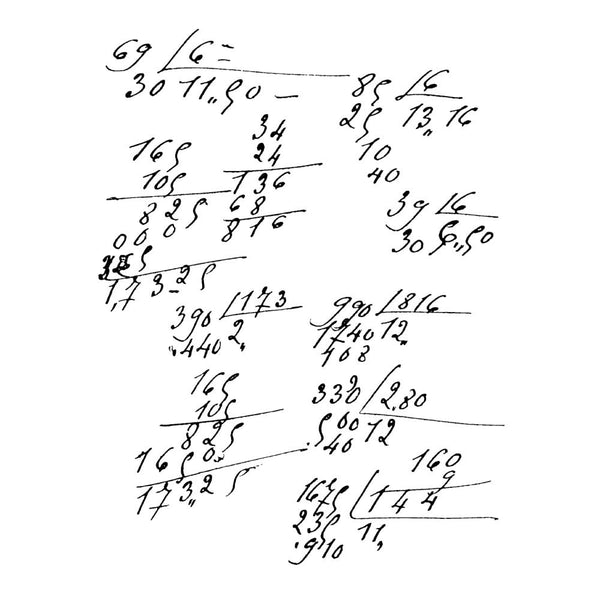 69 6 =
30 11,,50 —
85 6
25 13,,16
10
40
165
105
825
000
173-25
34
24
136
68
816
39 6
30 6,,50
390 173
440 2,,
990 816
1740 12,,
108
165
105
825
1650
173,,25
330 2.80
500 12
40
160
9
1675 144
235 11,,
.910